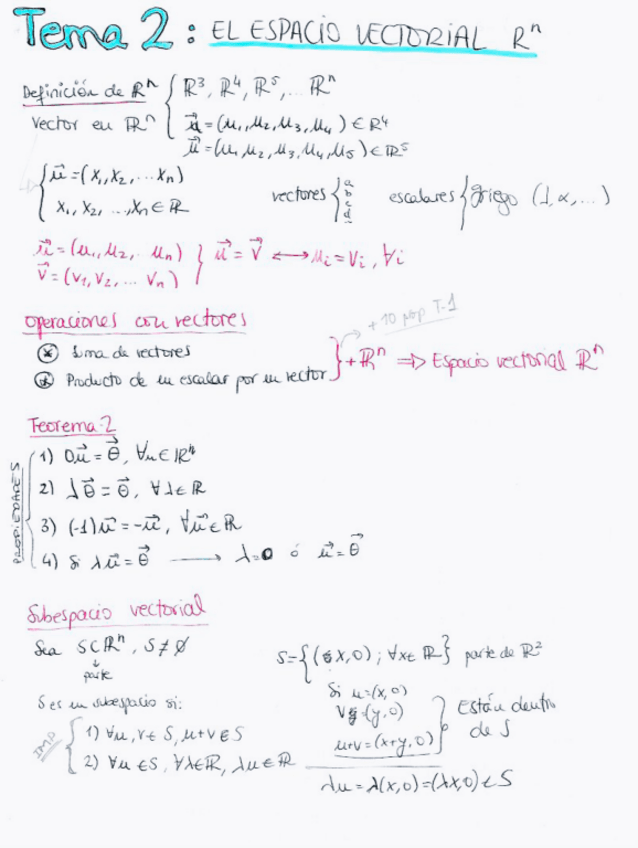 Tema 2: EL ESPACIO VECTORIAL Rⁿ
Definición de Rⁿ { R³, R⁴, R⁵, ... Rⁿ
vector en Rⁿ u⃗ = (u₁, u₂, u₃, u₄) ∈ R⁴
u⃗ = (u₁, u₂, u₃, u₄, u₅) ∈ R⁵
{ u⃗ = (x₁, x₂, ... xₙ)
x₁, x₂, ..., xₙ ∈ R
vectores { a b c d
escalares { griego (λ, α, ...)
u⃗ = (u₁, u₂, ... uₙ) } u⃗ = v⃗ ⟷ uᵢ = vᵢ, ∀i
v⃗ = (v₁, v₂, ... vₙ)
operaciones con vectores
→ +10 prop T-1
* suma de vectores
* Producto de un escalar por un vector } + Rⁿ ⇒ Espacio vectorial Rⁿ
Teorema 2
PROPIEDADES
1) 0u⃗ = θ⃗, ∀u ∈ Rⁿ
2) λθ⃗ = θ⃗, ∀λ ∈ R
3) (-1)u⃗ = -u⃗, ∀u⃗ ∈ R
4) Si λu⃗ = θ⃗ ⟶ λ=0 ó u⃗ = θ⃗
Subespacio vectorial
Sea S ⊂ Rⁿ, S ≠ ∅
↓
parte
S es un subespacio si:
IMP
1) ∀u, v ∈ S, u+v ∈ S
2) ∀u ∈ S, ∀λ ∈ R, λu ∈ R
S = {(x, 0); ∀x ∈ R} parte de R²
Si u = (x, 0)
v = (y, 0)
u+v = (x+y, 0) } Están dentro de S
λu = λ(x, 0) = (λx, 0) ∈ S